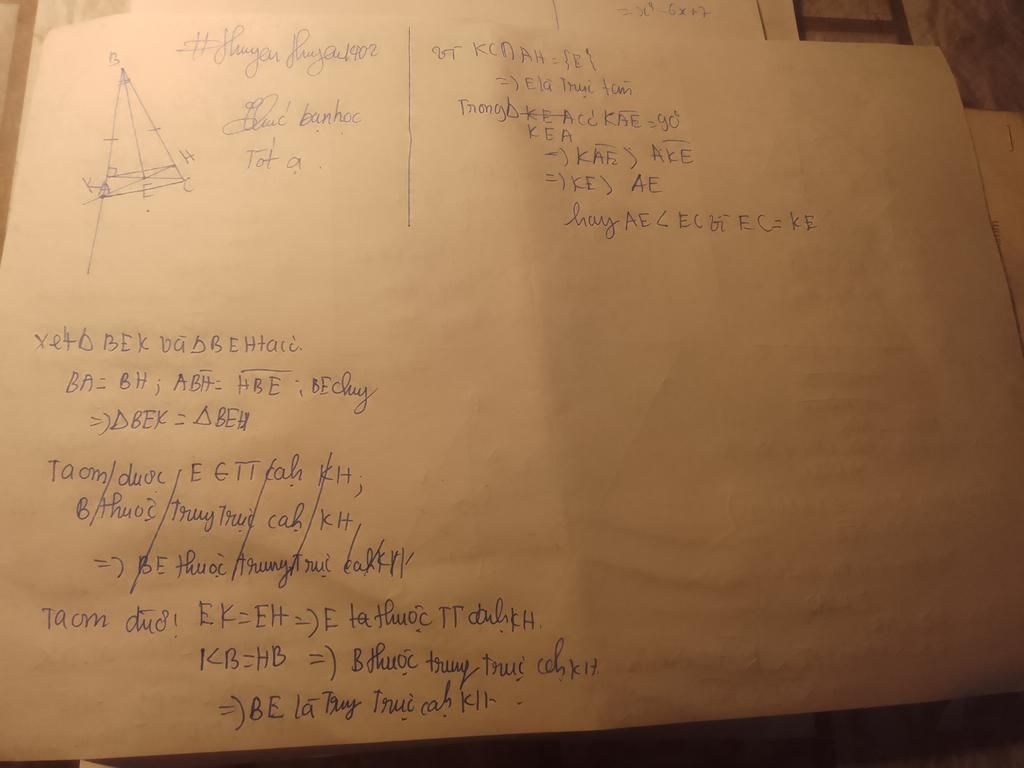 = x⁴ - 6x + 7
#thuyenthuyen1402
Chúc bạn học
Tốt ạ.
B
H
K
A
E
C
vì KC∩AH = {E}
=> E là Trực tâm
Trong Δ KEA có KAE = 90°
KEA
=> KAE > AKE
=> KE > AE
hay AE < EC vì EC = KE
xét Δ BEK và Δ BEH ta có.
BA = BH ; ABH = HBE ; BE chug
=> ΔBEK = ΔBEH
Ta cm được E ∈ TT cạh KH;
B thuộc truy trực cạh KH,
=> BE thuộc trung trực cạh KH
Ta cm đượ! EK = EH => E ta thuộc TT đ KH.
KB = HB => B thuộc trung trực cạh KH.
=> BE là Truy Trực cạh KH.